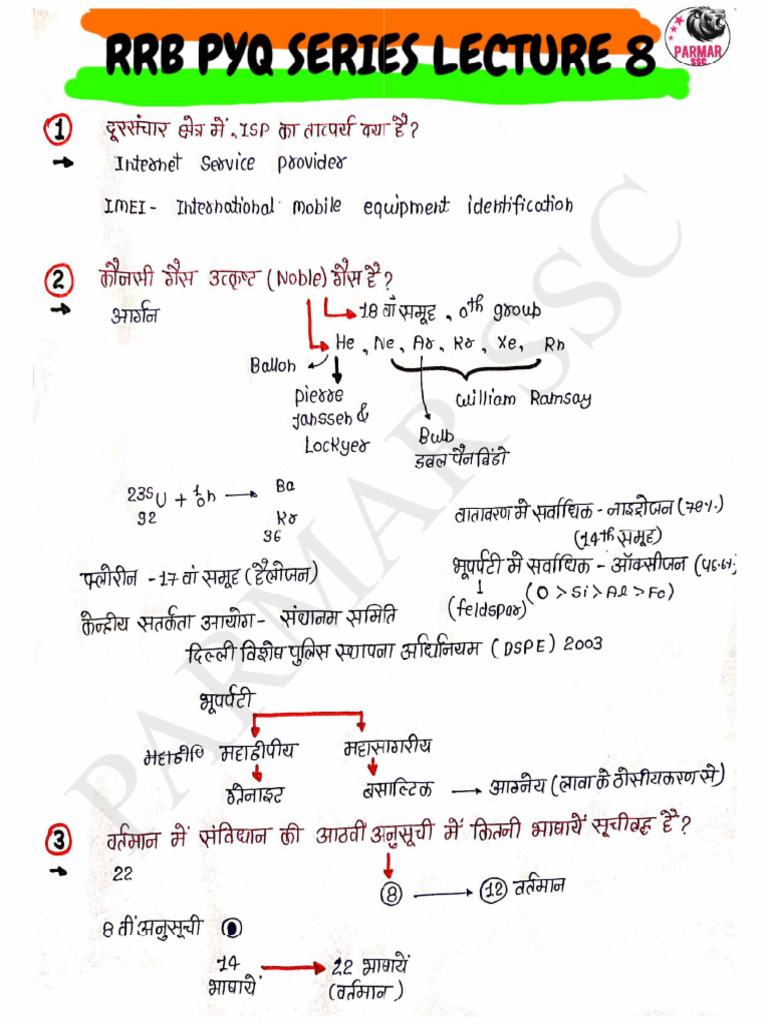 RRB PYQ SERIES LECTURE 8
PARMAR
SSC
PARMAR SSC
1 दूरसंचार क्षेत्र में, ISP का तात्पर्य क्या है?
→ Internet Service provider
IMEI - International mobile equipment identification
2 कौनसी गैस उत्कृष्ट (Noble) गैस है?
→ आर्गन
18 वां समूह, 0th group
He, Ne, Ar, Kr, Xe, Rn
Ballon
Pierre
Janssen &
Lockyer
William Ramsay
Bulb
डबल पैन विंडो
235 92 U + 1 0 n → Ba
Kr
36
वातावरण मे सर्वाधिक - नाइट्रोजन (78%)
(14th समूह)
फ्लोरीन - 17 वां समूह (हैलोजन)
भूपर्पटी में सर्वाधिक - ऑक्सीजन (46.6%)
(feldspar)
(O > Si > Al > Fe)
केन्द्रीय सतर्कता आयोग - संथानम समिति
दिल्ली विशेष पुलिस स्थापना अधिनियम (DSPE) 2003
भूपर्पटी
महाद्वीपीय महासागरीय
ग्रेनाइट बेसाल्टिक → आग्नेय (लावा के ठोसीयकरण से)
3 वर्तमान में संविधान की आठवीं अनुसूची में कितनी भाषायें सूचीबद्ध है?
→ 22
8 → 12 वर्तमान
8 वीं अनुसूची
14 → 22 भाषायें
भाषायें (वर्तमान)